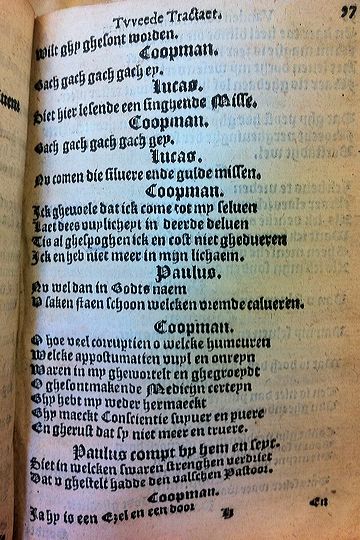 Tvveede Tractaet. 37
Wilt ghy ghesont worden.
Coopman.
Gach gach gach gach ey.
Lucas.
Siet hier lesende een singhende Misse.
Coopman.
Gach gach gach gach gey.
Lucas.
Nv comen die siluere ende gulde missen.
Coopman.
Ick ghevoele dat ick come tot my seluen
Laet dees vuylicheyt in deerde deluen
Tis al ghespoghen ick en cost niet ghedueren
Ick en heb niet meer in mijn lichaem.
Paulus.
Nv wel dan in Godts naem
V saken staen schoon welcken vremde calueren.
Coopman.
O hoe veel corruptien o welcke humeuren
Welcke appostumatien vuyl en onreyn
Waren in my ghewortelt en ghegroeydt
O ghesontmakende Medicijn certeyn
Ghy hebt my weder hermaeckt
Ghy maeckt Conscientie supuer en puere
En gherust dat sy niet meer en truere.
Paulus compt by hem en seyt.
Siet in welcken swaren strenghen verdriet
Dat v ghestelt hadde den valschen Pastoor.
Coopman.
Ja hy is een Ezel en een door
H En